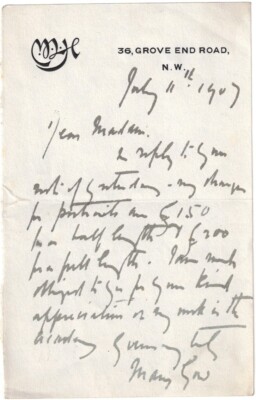 M.L.H
36, GROVE END ROAD,
N.W.
July 11th. 1907
Dear Madam.
In reply to your
note of yesterday - my charges
for portraits are £150
for a half length & £200
for a full length. I am much
obliged to you for your kind
appreciation of my work in the
Academy
Yours truly
Mary Gow